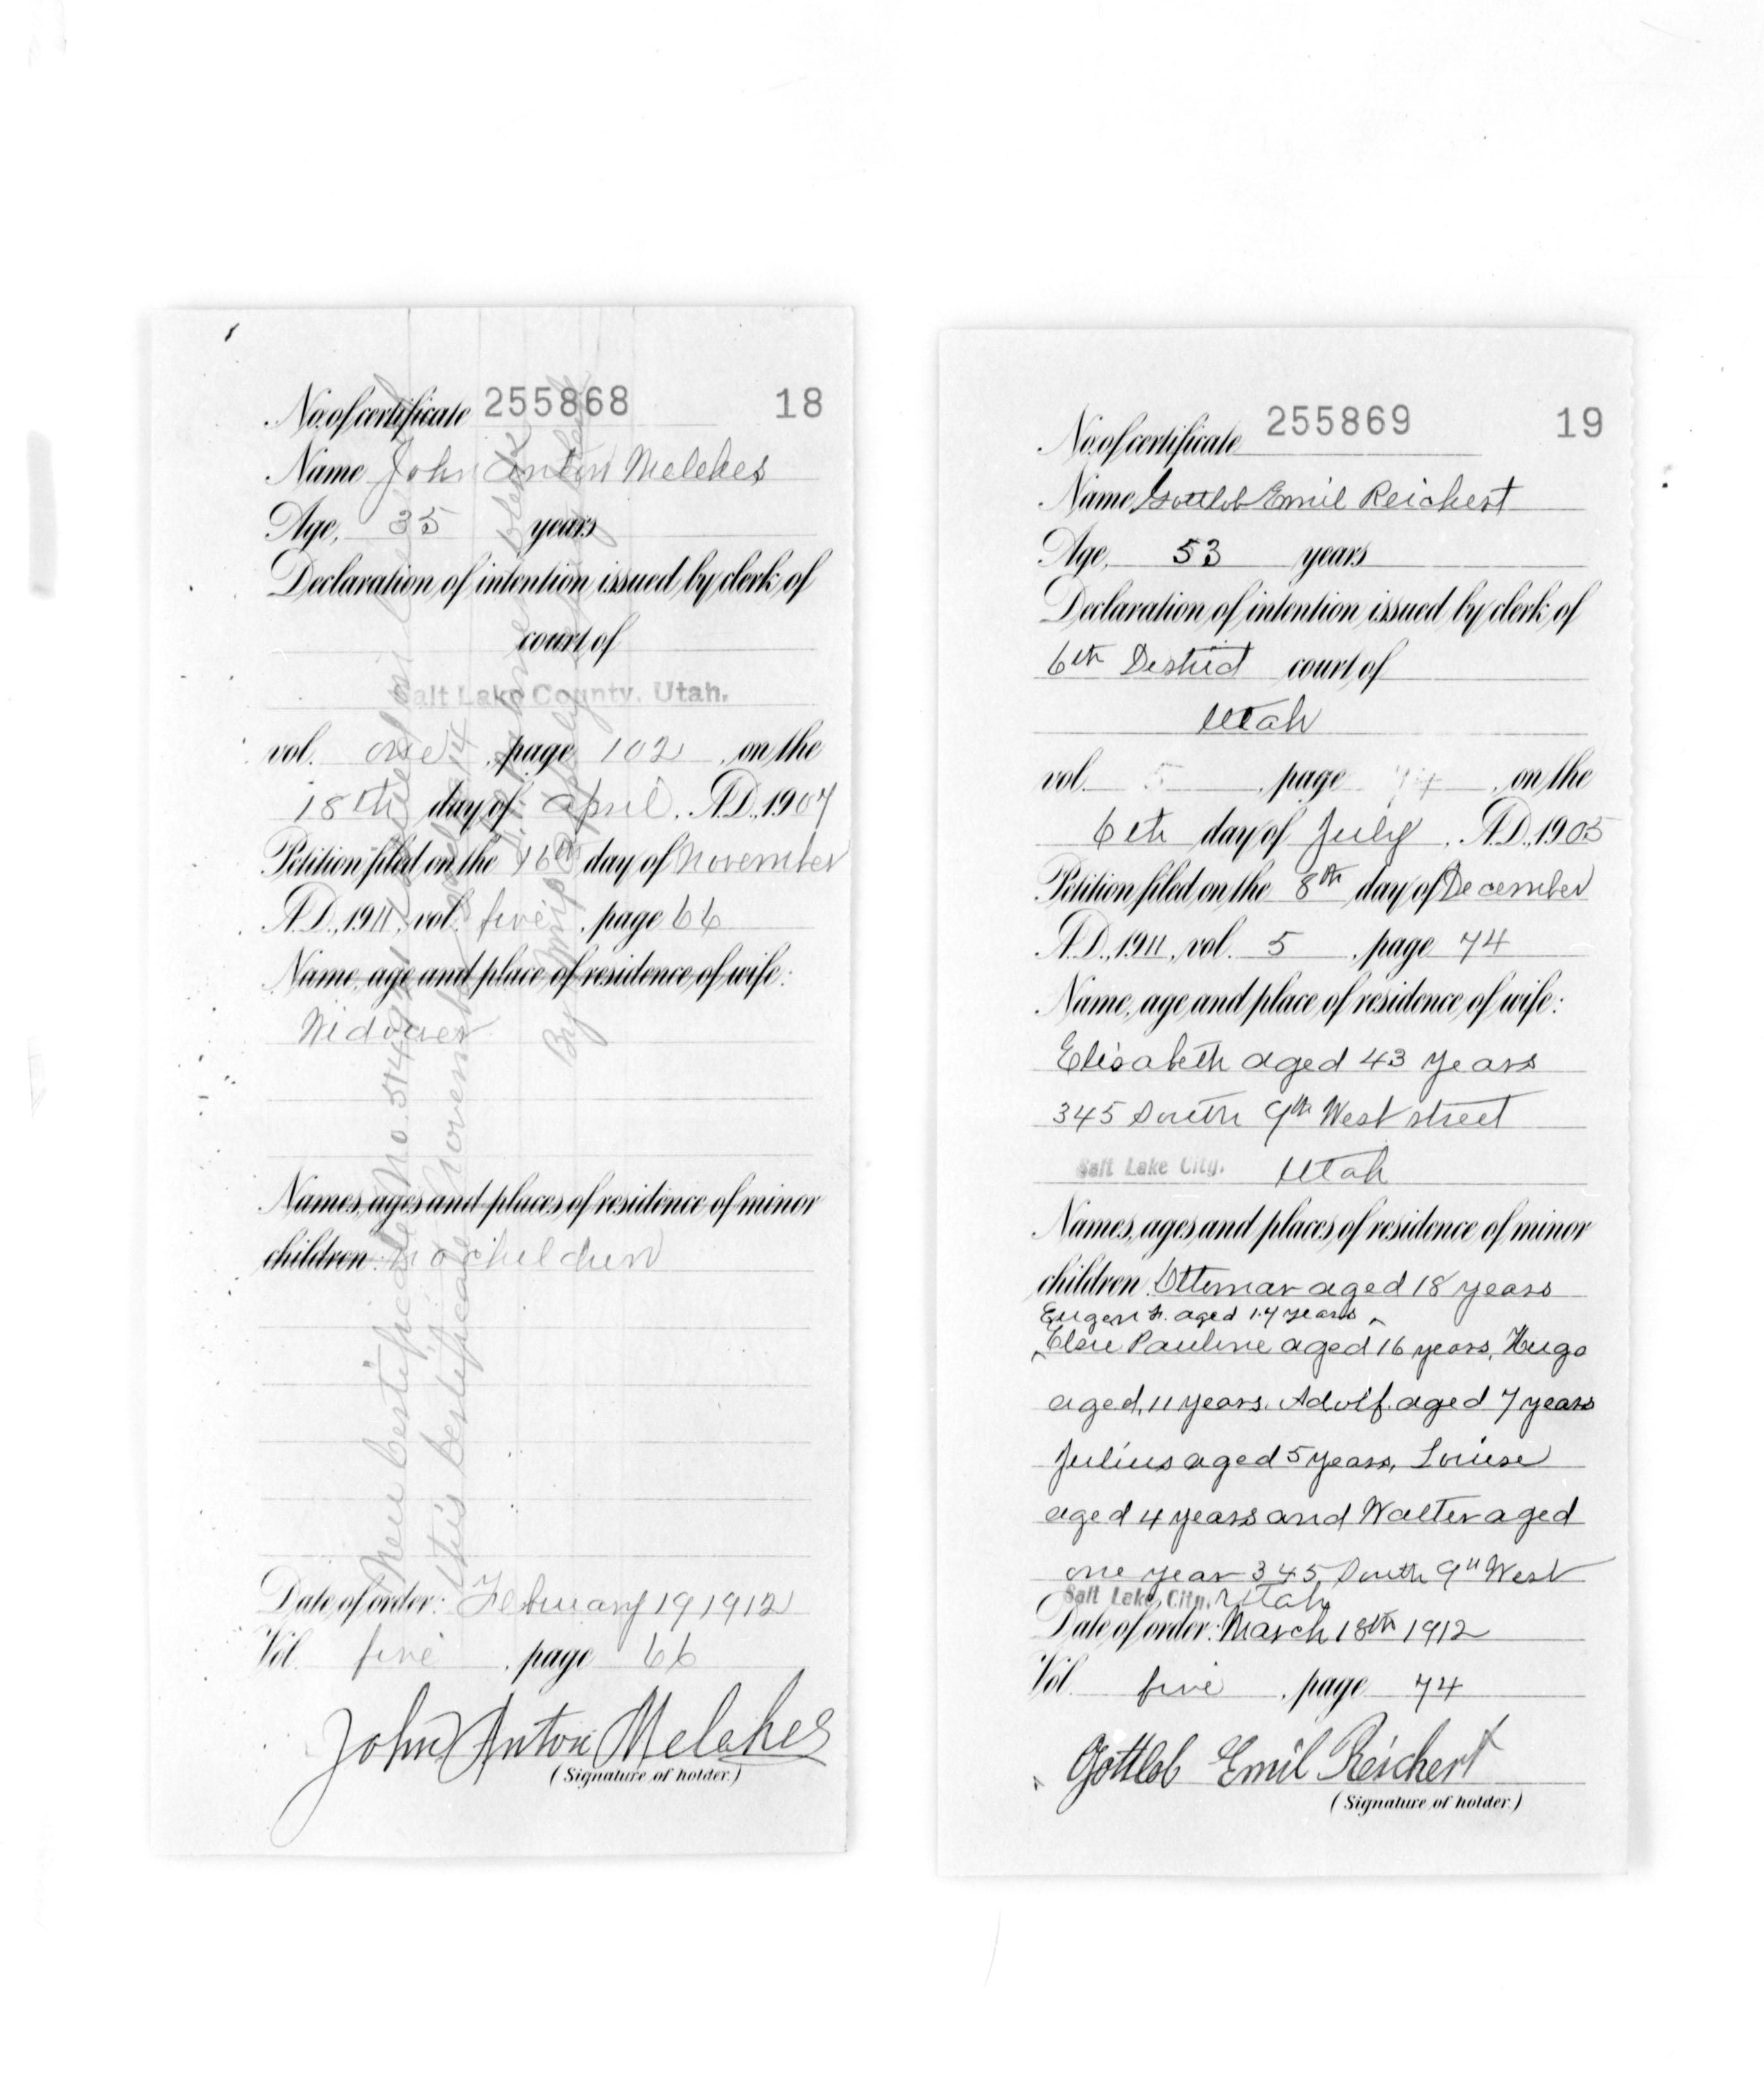 No. of certificate 255868 18
Name John Anton Melches
Age, 35 years
Declaration of intention issued by clerk of
court of
Salt Lake County, Utah.
vol. one, page 102, on the
18th day of April, A.D., 1907
Petition filed on the 16th day of November
A.D., 1911, vol. five, page 66
Name, age and place of residence of wife:
Widower
Names, ages and places of residence of minor
children: No children
Date of order: February 19 1912
Vol. five, page 66
John Anton Melches
(Signature of holder.)
New Certificate No. 514
this Certificate November
By
No. of certificate 255869 19
Name Gottlob Emil Reichert
Age, 53 years
Declaration of intention issued by clerk of
6th District court of
Utah
vol. 5, page 74, on the
6th day of July, A.D., 1905
Petition filed on the 8th day of December
A.D., 1911, vol. 5, page 74
Name, age and place of residence of wife:
Elisabeth aged 43 years
345 South 9th West street
Salt Lake City, Utah
Names, ages and places of residence of minor
children: Ottomar aged 18 years
Eugen F. aged 14 years
Elsie Pauline aged 16 years, Hugo
aged 11 years. Adolf aged 7 years
Julius aged 5 years, Louise
aged 4 years and Walter aged
one year 345 South 9th West
Salt Lake City, Utah
Date of order: March 18th 1912
Vol. five, page 74
Gottlob Emil Reichert
(Signature of holder.)